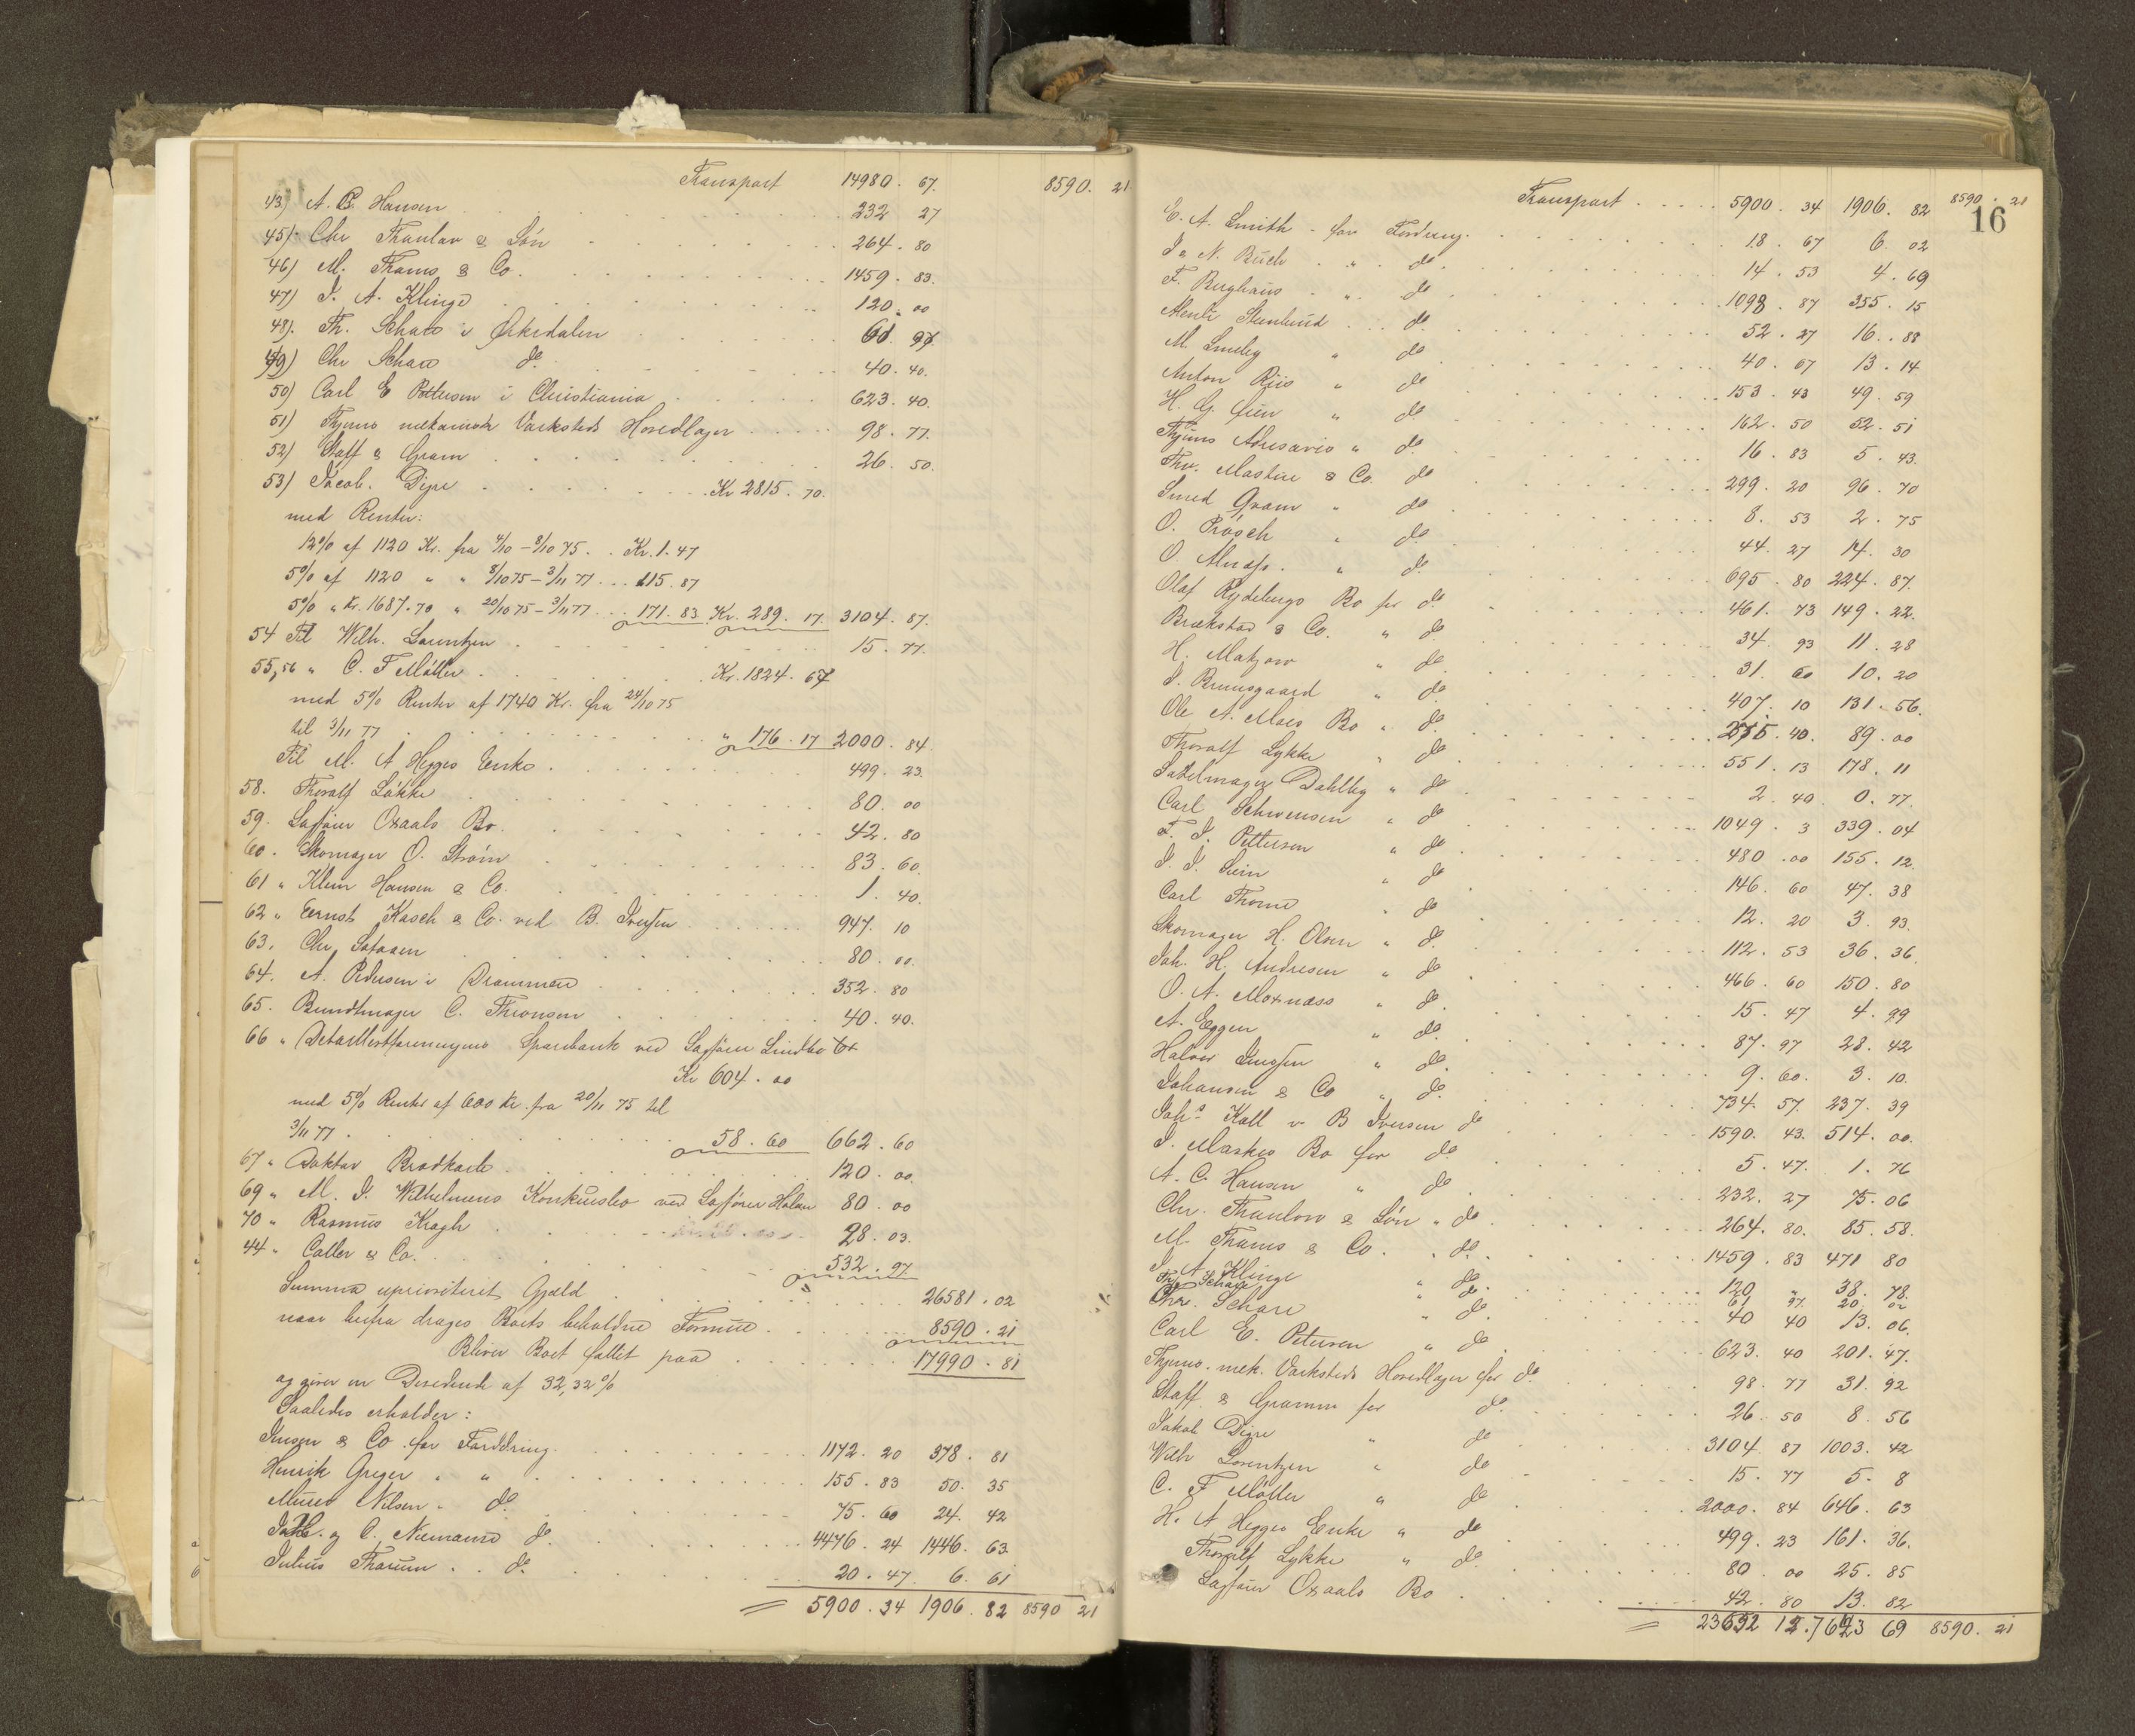 Transport 14980. 67. 8590. 21
43) A. C. Hansen 232 27
45) Chr Thaulow & Sön 264. 80
46) M. Thams & Co. 1459. 83.
47) I. A. Klinge 120. 00
48). Th. Schao i Orkedalen 61 97
49) Chr Schao do 40. 40.
50) Carl E Pettersen i Christiania 623. 40.
51) Thjems mekaniske Værksteds Hovedlager 98. 77.
52) Staff & Gram 26. 50.
53) Jacob. Digre Kr 2815. 70.
med Renter:
12% af 1120 Kr. fra 4/10 - 8/10 75 . . Kr. 1. 47
5% af 1120 " " 8/10 75 - 3/11 77 . . . 115. 87
5% " Kr. 1687. 70 " 20/10 75 - 3/11 77 . . . 171. 83 Kr. 289. 17. 3104. 87.
54 Til Wilh. Lorentzen 15. 77.
55, 56 " C. F Möller Kr. 1824. 67
med 5% Renter af 1740 Kr. fra 24/10 75
til 3/11 77 " 176. 17 2000. 84.
Til M. A Hegges Enke 499. 23.
58. Thoralf Lökke 80. 00
59. Sagförer Oxaals Bo 42. 80
60. Skomager O. Ström 83. 60.
61 " Klem Hansen & Co. 1. 40.
62 " Ernst Kasch & Co. ved B. Iversen 947. 10
63. Chr 80. 00.
64. A. Pedersen i Drammen 352. 80
65. Bundtmager C. Thronsen 40. 40.
66 " Detaillistforeningens Sparebank ved Sagförer Lindboe
Kr 604. 00
med 5% Renter af 600 Kr. fra 20/11 75 til
3/11 77 58. 60 662. 60
67 " Doktor Brodkorb 120. 00.
69 " M. I. Wilhelmsens Konkursbo ved Sagförer Holan 80. 00
70 " Rasmus Kragh 28. 03.
44 " Coller & Co. 532. 97
Summa uprioriteret Gjæld 26581. 02
naar herfra drages Boets beholdne Formue 8590. 21
Bliver Boet fallit paa 17990. 81
og giver en Dividende af 32,32%
Saaledes erholder:
Jensen & Co. for Fordring 1172. 20 378. 81
Henrik Greger " " 155. 83 50. 35
Murer Nilsen " do 75. 60 24. 42
og C. Niemann do 4476. 24 1446. 63
Julius Tharum . . do 20. 47. 6. 61
5900. 34 1906. 82 8590 21
16
Transport 5900. 34 1906. 82 8590. 21
E. A. Smith - for Fordring. 18. 67 6. 02
I. N. Buch " do 14. 53 4. 69
F. Berghaus " do 1098. 87 355. 15
Stenlund do 52. 27 16. 88
M. Lindey " do 40. 67 13. 14
Anton Riis " do 153. 43 49. 59
H. G. " do 162. 50 52. 51
Thjems Adresavis " do 16. 83 5. 43.
Thv. Mastin & Co. do 299. 20 96. 70
Smed Gram " do 8. 53 2. 75
O. Prösch " do 44. 27 14. 30
O. " do 695. 80 224. 87.
Olaf Rydebergs Bo for do 461. 73 149. 22.
Brækstad & Co. " do 34. 93 11. 28
H. Matzow " do 31. 60 10. 20
I. Bruusgaard " do 407. 10 131. 56.
Ole A. Moes Bo " do 275. 40. 89. 00
Thoralf Lykke " do 551. 13 178. 11
Sadelmager Dahlby " do 2. 40 0. 77.
Carl Schwensen " do 1049. 3 339. 04
F. I. Pettersen " do 480. 00 155. 12.
I. I. Siem " do 146. 60 47. 38
Carl Thome " do 12. 20 3. 93.
Skomager H. Olsen " do 112. 53 36. 36.
Joh. H. Andresen " do 466. 60 150. 80
O. A. Moxnæss " do 15. 47 4. 99
A. Eggen " do 87. 97 28. 42
Halvor Jenssen " do 9. 60. 3. 10.
Johansen & Co " do 734. 57. 237. 39
Johs Kall v B Iversen do 1590. 43. 514. 00.
I. Maskes Bo for do 5. 47. 1. 76
A. C. Hansen " do 232. 27 75. 06
Chr. Thaulow & Sön " do 264. 80. 85. 58.
M. Thams & Co. " do 1459. 83 471 80
I. A. Klinge " do 120 " 38. 78.
Th. Schao " do 61 97. 20. 02
Chr. Schao " do 40 40 13. 06.
Carl E. Petersen " do 623. 40 201. 47.
Thjems. mek. Værksteds Hovedlager for do 98. 77 31. 92
Staff & Gramm for do 26. 50 8. 56
Jakob Digre " do 3104. 87 1003. 42
Wilh Lorentzen " do 15. 77 5. 8
C. F Möller " do 2000. 84 646. 63
H. A Hegges Enke " do 499. 23 161. 36.
Thoralf Lykke " do 80. 00 25. 85
Sagförer Oxaals Bo 42. 80 13. 82
23692 12. 7623 69 8590. 21